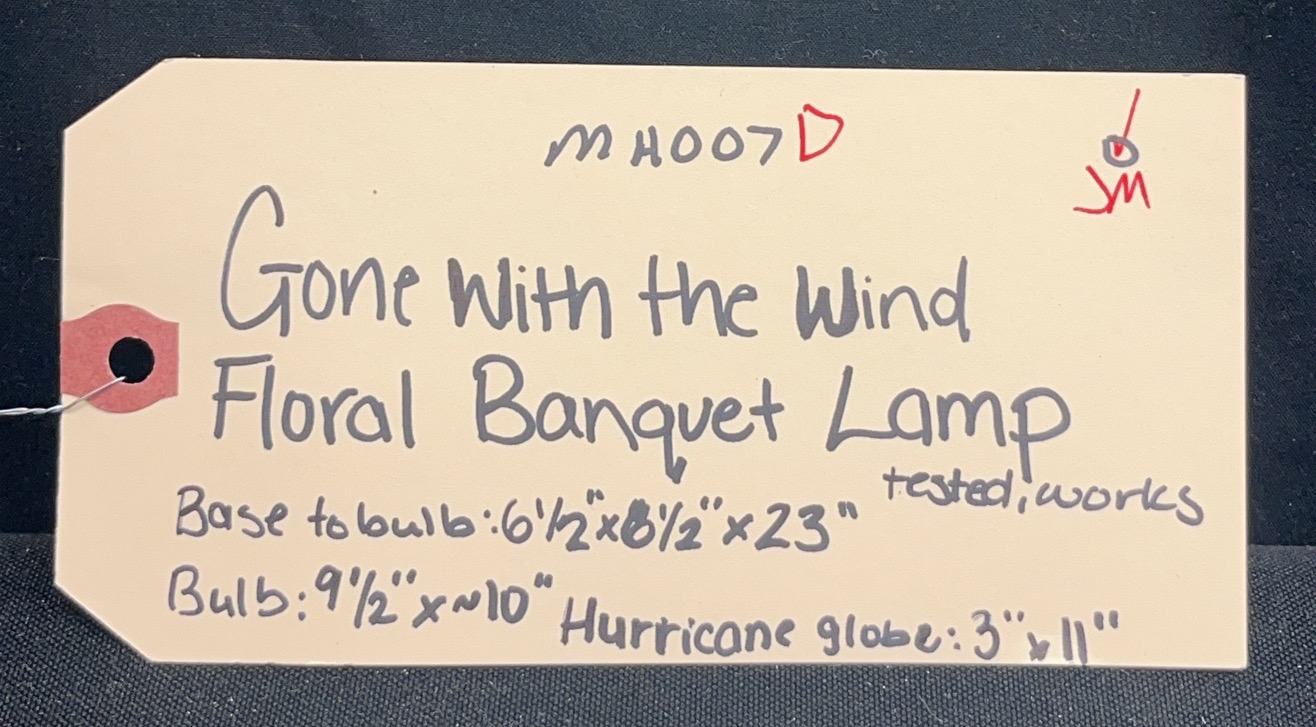 MH007D
JM
Gone With the Wind
Floral Banquet Lamp
tested, works
Base to bulb: 6 1/2" x 8 1/2" x 23"
Bulb: 9 1/2" x ~10"
Hurricane globe: 3" x 11"